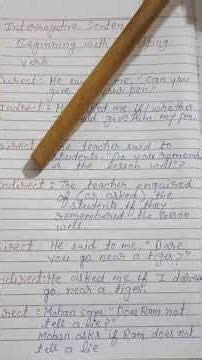 Interrogative Senten
Beginning with
Verb
irect: He said me, "Can you
give your pen."
Indirect: He asked me if/whether
I could give him my pen.
irect: The teacher said to
students. "Do you remember
the lesson well?"
Indirect: The teacher enquired
of (or, asked) the
students if they
remembered the lesson
well.
irect He said to me, "Dare
you go near a tiger?"
ndirect: He asked me if I dared
go near a tiger.
irect: Mohan says "Does Ram not
tell a lie?"
Mohan asks if Ram does not
tell a lie